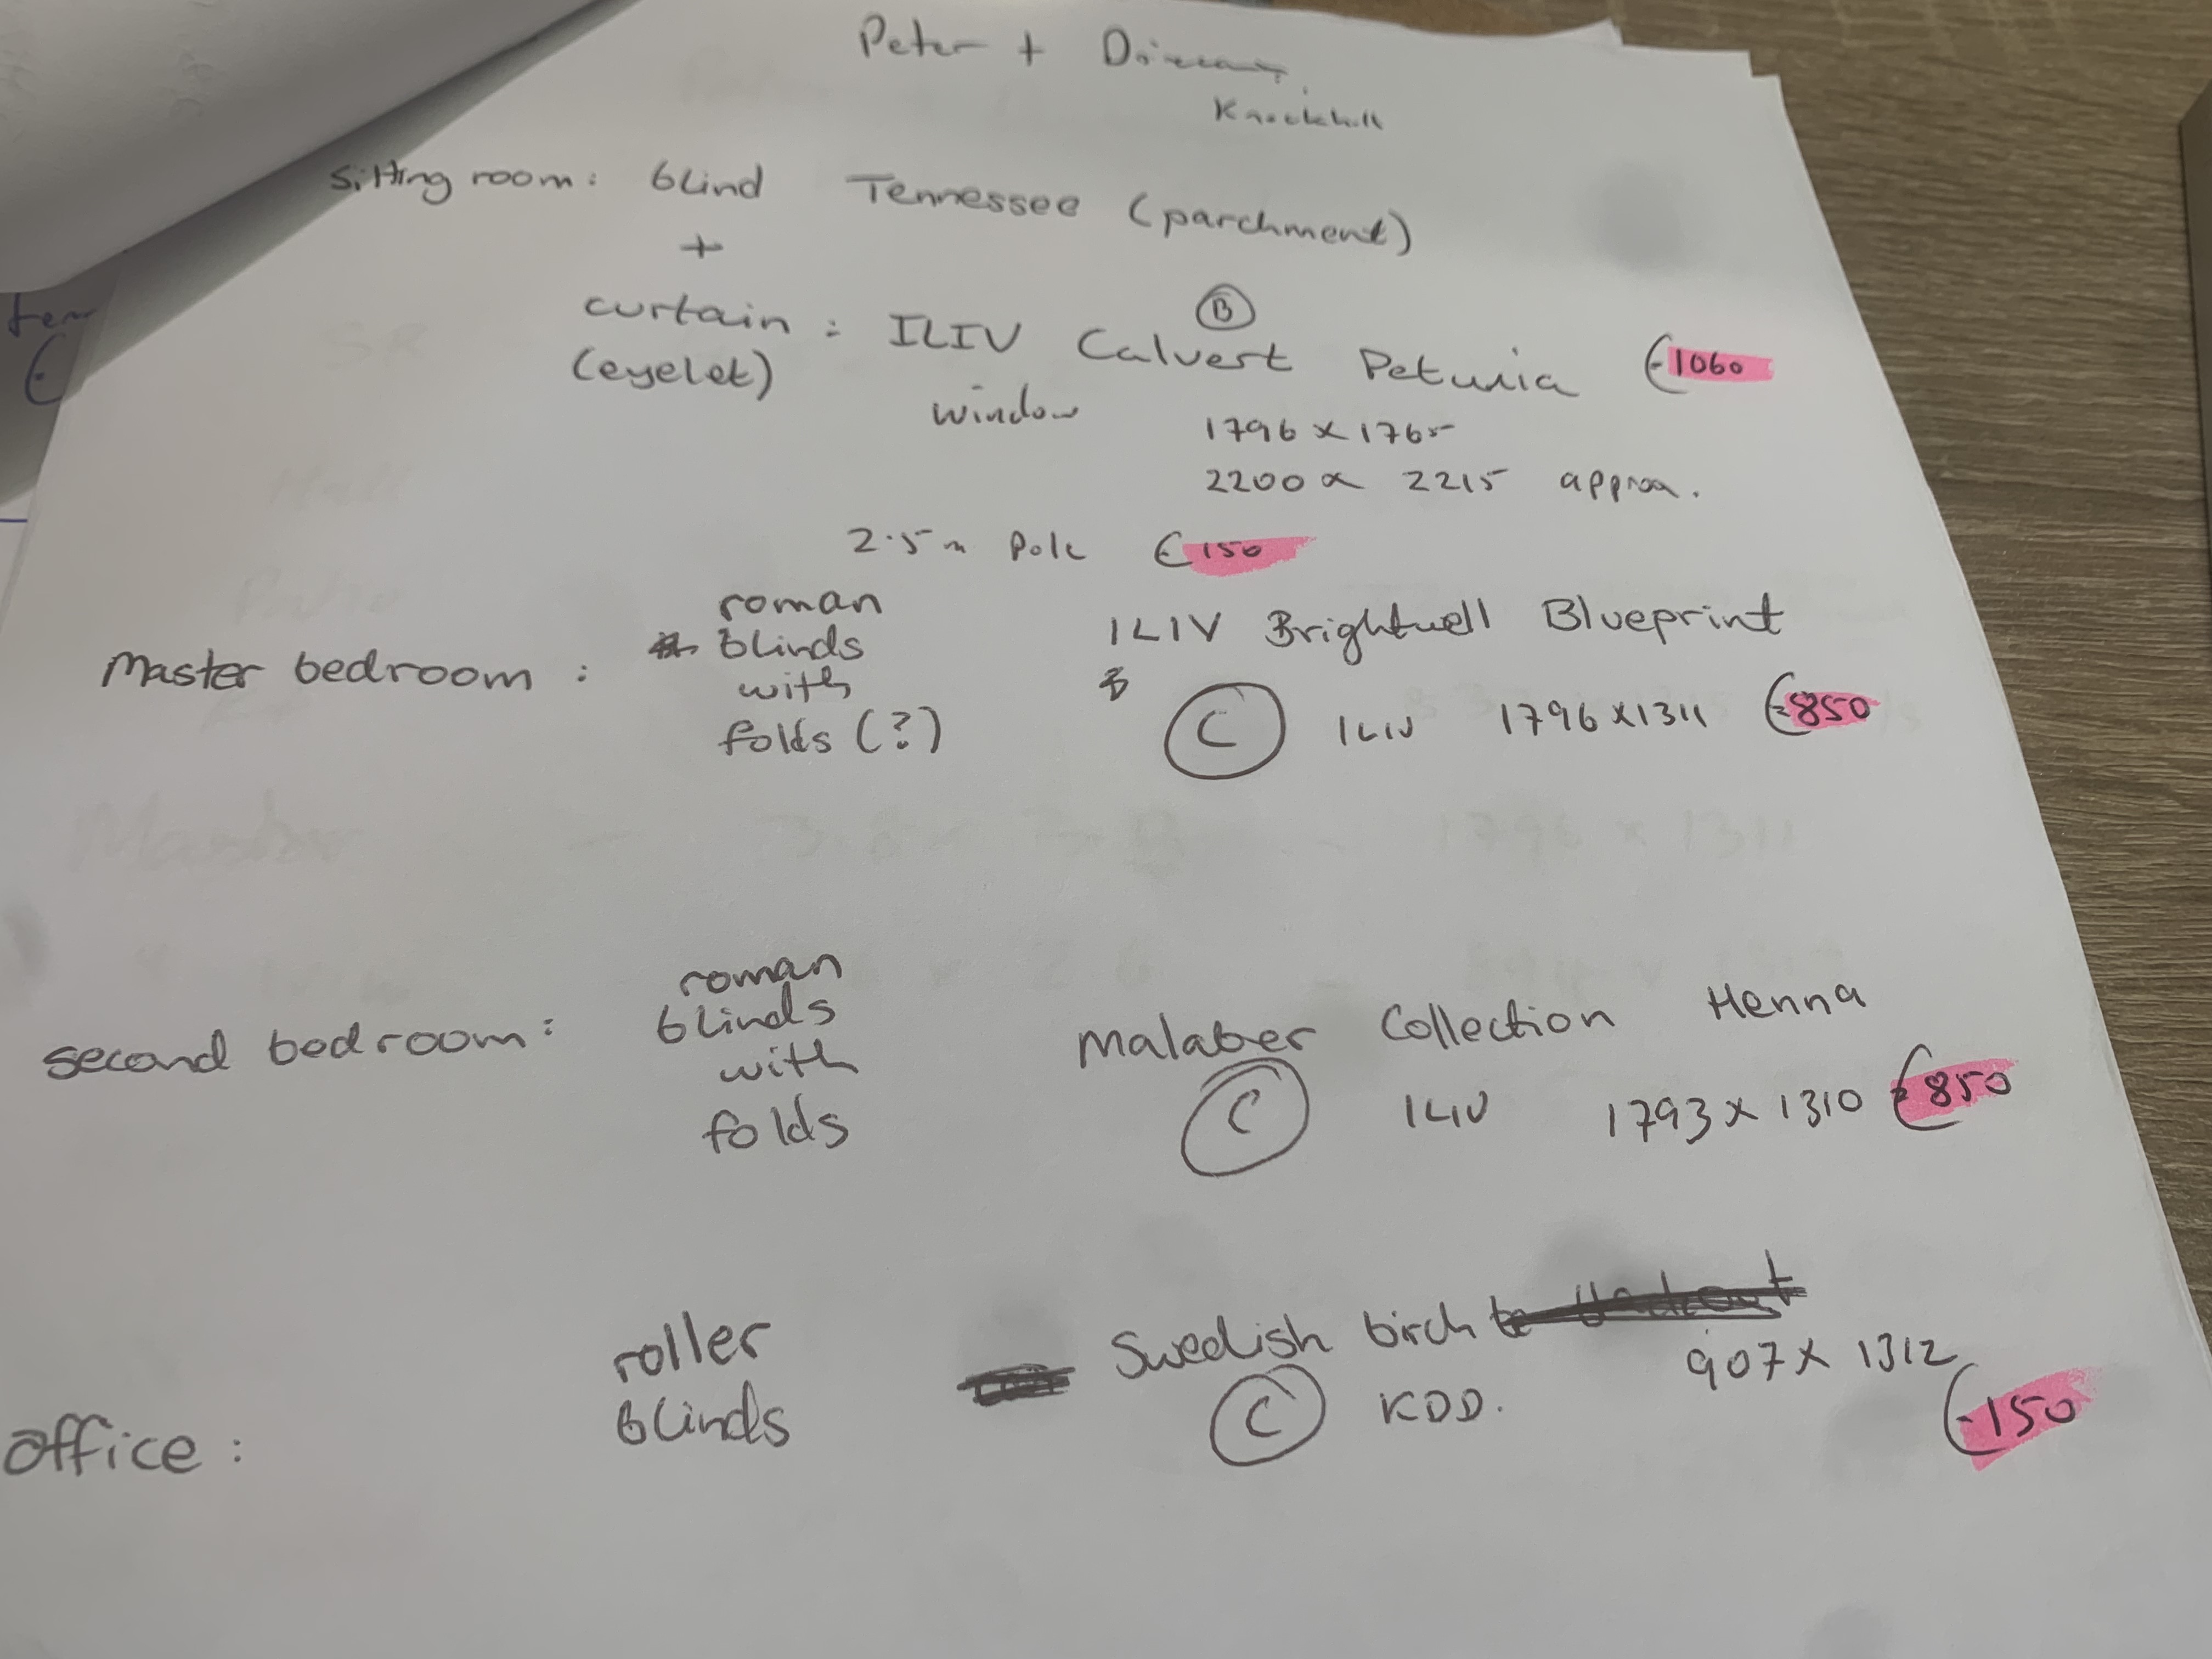 Peter +
Knockhill
Sitting room: blind Tennessee (parchment)
+
B
curtain : ILIV Calvert Petunia €1060
(eyelet)
window 1796 x 1765
2200 x 2215 approx.
2.5m Pole €150
Master bedroom : roman blinds with folds (?)
ILIV Brightwell Blueprint
C ILIV 1796 x 1311 €850
second bedroom: roman blinds with folds
Malaber Collection Henna
C ILIV 1793 x 1310 €850
office : roller blinds
Swedish birch
907 x 1312
C KDD. €150